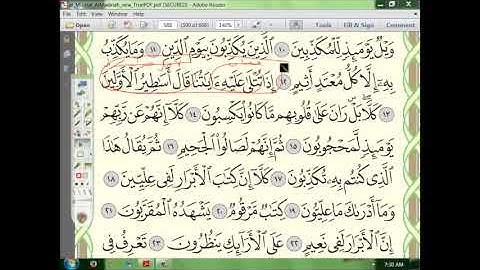 (SECURED) - Adobe Reader
Tools Fill & Sign Comment
وَيْلٌ يَوْمَئِذٍ لِّلْمُكَذِّبِينَ ١٠ ٱلَّذِينَ يُكَذِّبُونَ بِيَوْمِ ٱلدِّينِ ١١ وَمَا يُكَذِّبُ
بِهِۦٓ إِلَّا كُلُّ مُعْتَدٍ أَثِيمٍ ١٢ إِذَا تُتْلَىٰ عَلَيْهِ ءَايَٰتُنَا قَالَ أَسَٰطِيرُ ٱلْأَوَّلِينَ
١٣ كَلَّا ۖ بَلْ ۜ رَانَ عَلَىٰ قُلُوبِهِم مَّا كَانُوا۟ يَكْسِبُونَ ١٤ كَلَّآ إِنَّهُمْ عَن رَّبِّهِمْ
يَوْمَئِذٍ لَّمَحْجُوبُونَ ١٥ ثُمَّ إِنَّهُمْ لَصَالُوا۟ ٱلْجَحِيمِ ١٦ ثُمَّ يُقَالُ هَٰذَا
ٱلَّذِى كُنتُم بِهِۦ تُكَذِّبُونَ ١٧ كَلَّآ إِنَّ كِتَٰبَ ٱلْأَبْرَارِ لَفِى عِلِّيِّينَ ١٨
وَمَآ أَدْرَىٰكَ مَا عِلِّيُّونَ ١٩ كِتَٰبٌ مَّرْقُومٌ ٢٠ يَشْهَدُهُ ٱلْمُقَرَّبُونَ ٢١
إِنَّ ٱلْأَبْرَارَ لَفِى نَعِيمٍ ٢٢ عَلَى ٱلْأَرَآئِكِ يَنظُرُونَ ٢٣ تَعْرِفُ فِى
7:30 AM